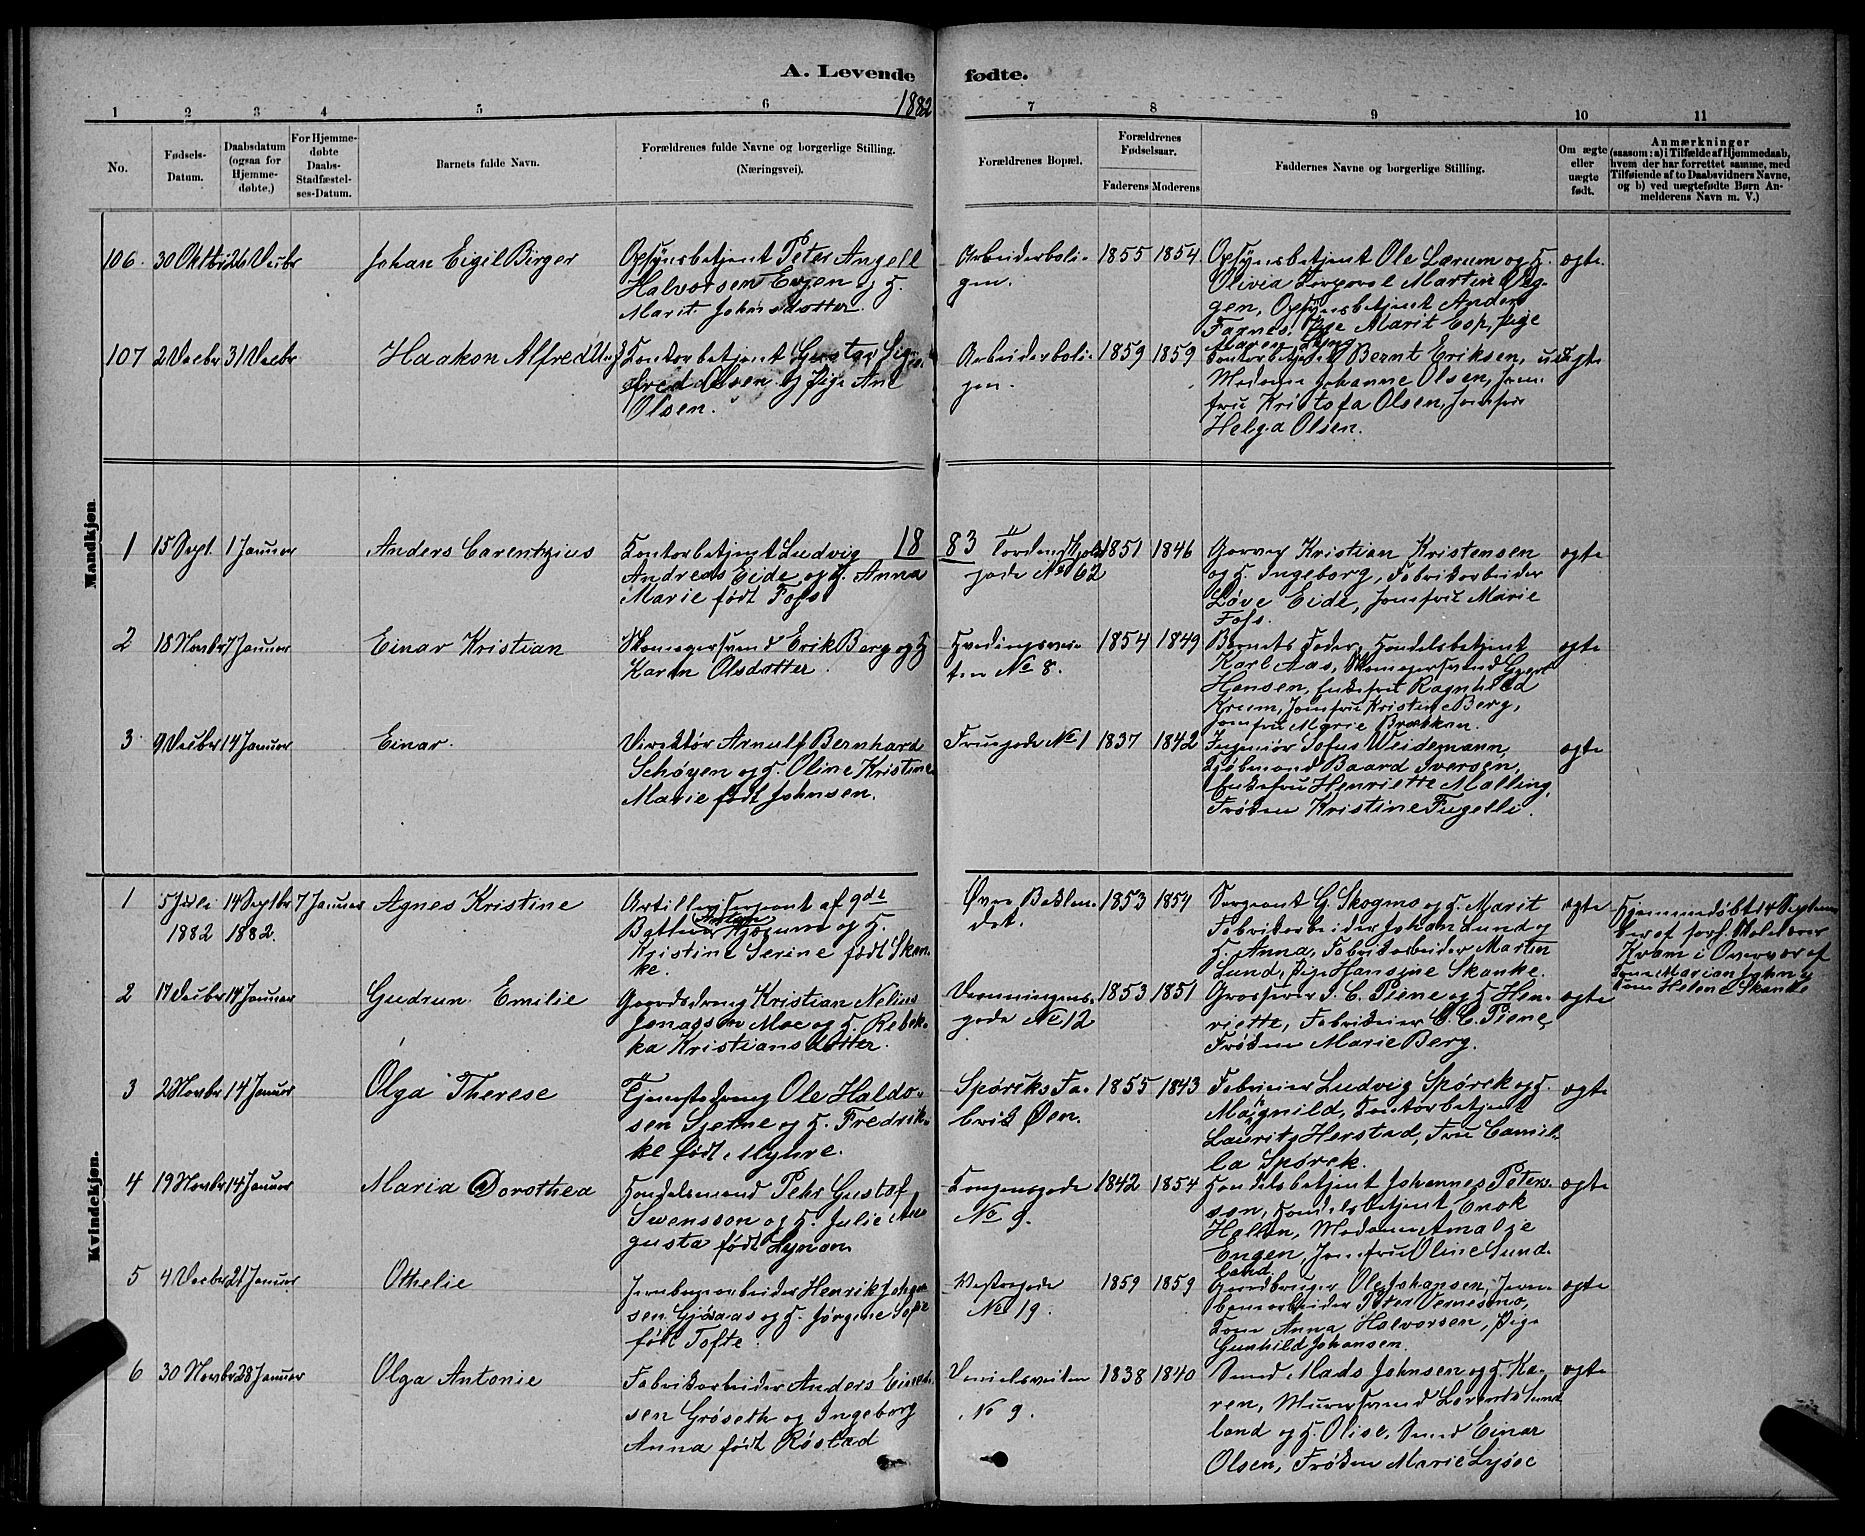 A. Levende fødte.
1882
1 2 3 4 5 6 7 8 9 10 11
No.
Fødsels-
Datum.
Daabsdatum
(ogsaa for
Hjemme-
døbte.)
For Hjemme-
døbte
Daabs-
Stadfæstel-
ses-Datum.
Barnets fulde Navn.
Forældrenes fulde Navne og borgerlige Stilling.
(Næringsvei).
Forældrenes Bopæl.
Forældrenes
Fødselsaar.
Faderens Moderens
Faddernes Navne og borgerlige Stilling.
Om ægte
eller
uægte
født.
Anmærkninger
(saasom: a) i Tilfælde af Hjemmedaab,
hvem der har forrettet samme, med
Tilføiende af to Daabsvidners Navne,
og b) ved uægtefødte Børn An-
melderens Navn m. V.)
Mandkjøn
106. 30 Oktbr 26 Decbr
Johan Eigil Birger
Opsynsbetjent Peter Angell
Halvorsen Evjen og H.
Marit Johnsdotter.
Arbeiderboli-
gen.
1855 1854
Opsynsbetjent Ole Lærum og H.
Olivia Martin
gen, Opsynsbetjent Anders
Farnes, Pige Marit Esp, Pige
Maren
ægte
107 2 Decbr 31 Decbr
Haakon Alfred
Kontorbetjent Gustav Sig-
fred Olsen og Pige Ane
Olsen.
Arbeiderboli-
gen.
1859 1859
Kontorbetjent Bernt Eriksen,
Madame Johanne Olsen, Jom-
fru Kristofa Olsen, Jomfru
Helga Olsen.
uægte
1883
1 15 Sept. 1 Januar
Anders Carentzius
Kontorbetjent Ludvig
Andreas Eide og H. Anna
Marie født Foss
Tordenskjolds
gade No 62
1851 1846
Garver Kristian Kristensen
og H. Ingeborg, Fabrikarbeider
Løve Eide, Jomfru Marie
Foss.
ægte
2 18 Novbr 7 Januar
Einar Kristian
Skomagersvend Erik Berg og H
Karen Olsdotter.
Hvedingsvei-
ten No 8.
1854 1849
Barnets Fader, Handelsbetjent
Karl Aas, Skomagersvend
Hansen, Enkefru Ragnhild
Kreem, Jomfru Kristine Berg,
Jomfru Marie Brækken.
ægte
3 9 Decbr 14 Januar
Einar.
Direktør Arnulf Bernhard
Schøyen og H. Oline Kristine
Marie født Johnsen.
Fruegade No 1
1837 1842
Ingeniør Tofus Weidemann,
Kjøbmand Baard Iversen,
Enkefru Henriette Malling,
Frøken Kristine Fugelli.
ægte
Kvindekjøn.
1 5 Juli 14 Septbr 7 Januar
1882 1882.
Agnes Kristine
Artillerisergeant af 9de
Batteri Anton og H.
Kristine Serine født Skan-
ke.
Øvre Baklan-
det.
1853 1859
Sergeant G. Skogmo og H. Marit
Fabrikarbeider Johan Lund og
H. Anna, Fabrikarbeider Martin
Lund, Pige Hansine Skanke.
ægte
Hjemmedøbt 14 Septem-
ber af forh. Skolelærer
Kvam i Overvær af
Kone Marian John og
Kone Helene Skanke
2 17 Decbr 14 Januar
Gudrun Emilie
Gaardsdreng Kristian Nelius
Jonassen Moe og H. Rebek-
ka Kristiansdotter.
Dronningens-
gade No 12
1853 1851
Grosserer I. C. Piene og H. Hen-
riette, Fabrikeier C. C. Piene,
Frøken Marie Berg.
ægte
3 2 Novbr 14 Januar
Olga Therese
Tjenestedreng Ole Haldo-
sen Sjetne og H. Fredrik-
ke født Myhre.
Spørcks Fa-
brik Øen.
1855 1843
Fabrikeier Ludvig Spørck og H.
Magnild, Kontorbetjent
Laurits Herstad, Fru Camil-
la Spørck.
ægte
4 19 Novbr 14 Januar
Maria Dorothea
Handelsmand Pehr Gustaf
Swensson og H. Julie Au-
gusta født Lyman
Kongensgade
No 9.
1842 1854
Handelsbetjent Johannes Peters-
sen, Handelsbetjent Enok
Holten, Madame Amalie
Engen, Jomfru Oline Sund-
land.
ægte
5 4 Decbr 21 Januar
Othelie
Jernbanearbeider Henrik Johan-
sen Gjøaas og H. Jørgine
født Tofte.
Vestergade
No 19.
1859 1859
Gaardbruger Ole Johansen, Jern-
banearbeider Peter Vernesmo,
Kone Anna Halvorsen, Pige
Gunhild Johansen.
ægte
6 30 Novbr 28 Januar
Olga Antonie
Fabrikarbeider Anders Einar-
sen Grøseth og Ingeborg
Anna født Røstad
Danielsveiten
No 9.
1838 1840
Svend Mads Johnsen og H. Ka-
ren, Murersvend Lorents Sund-
land og H. Olise, Svend Einar
Olsen, Frøken Marie Lysoe
ægte